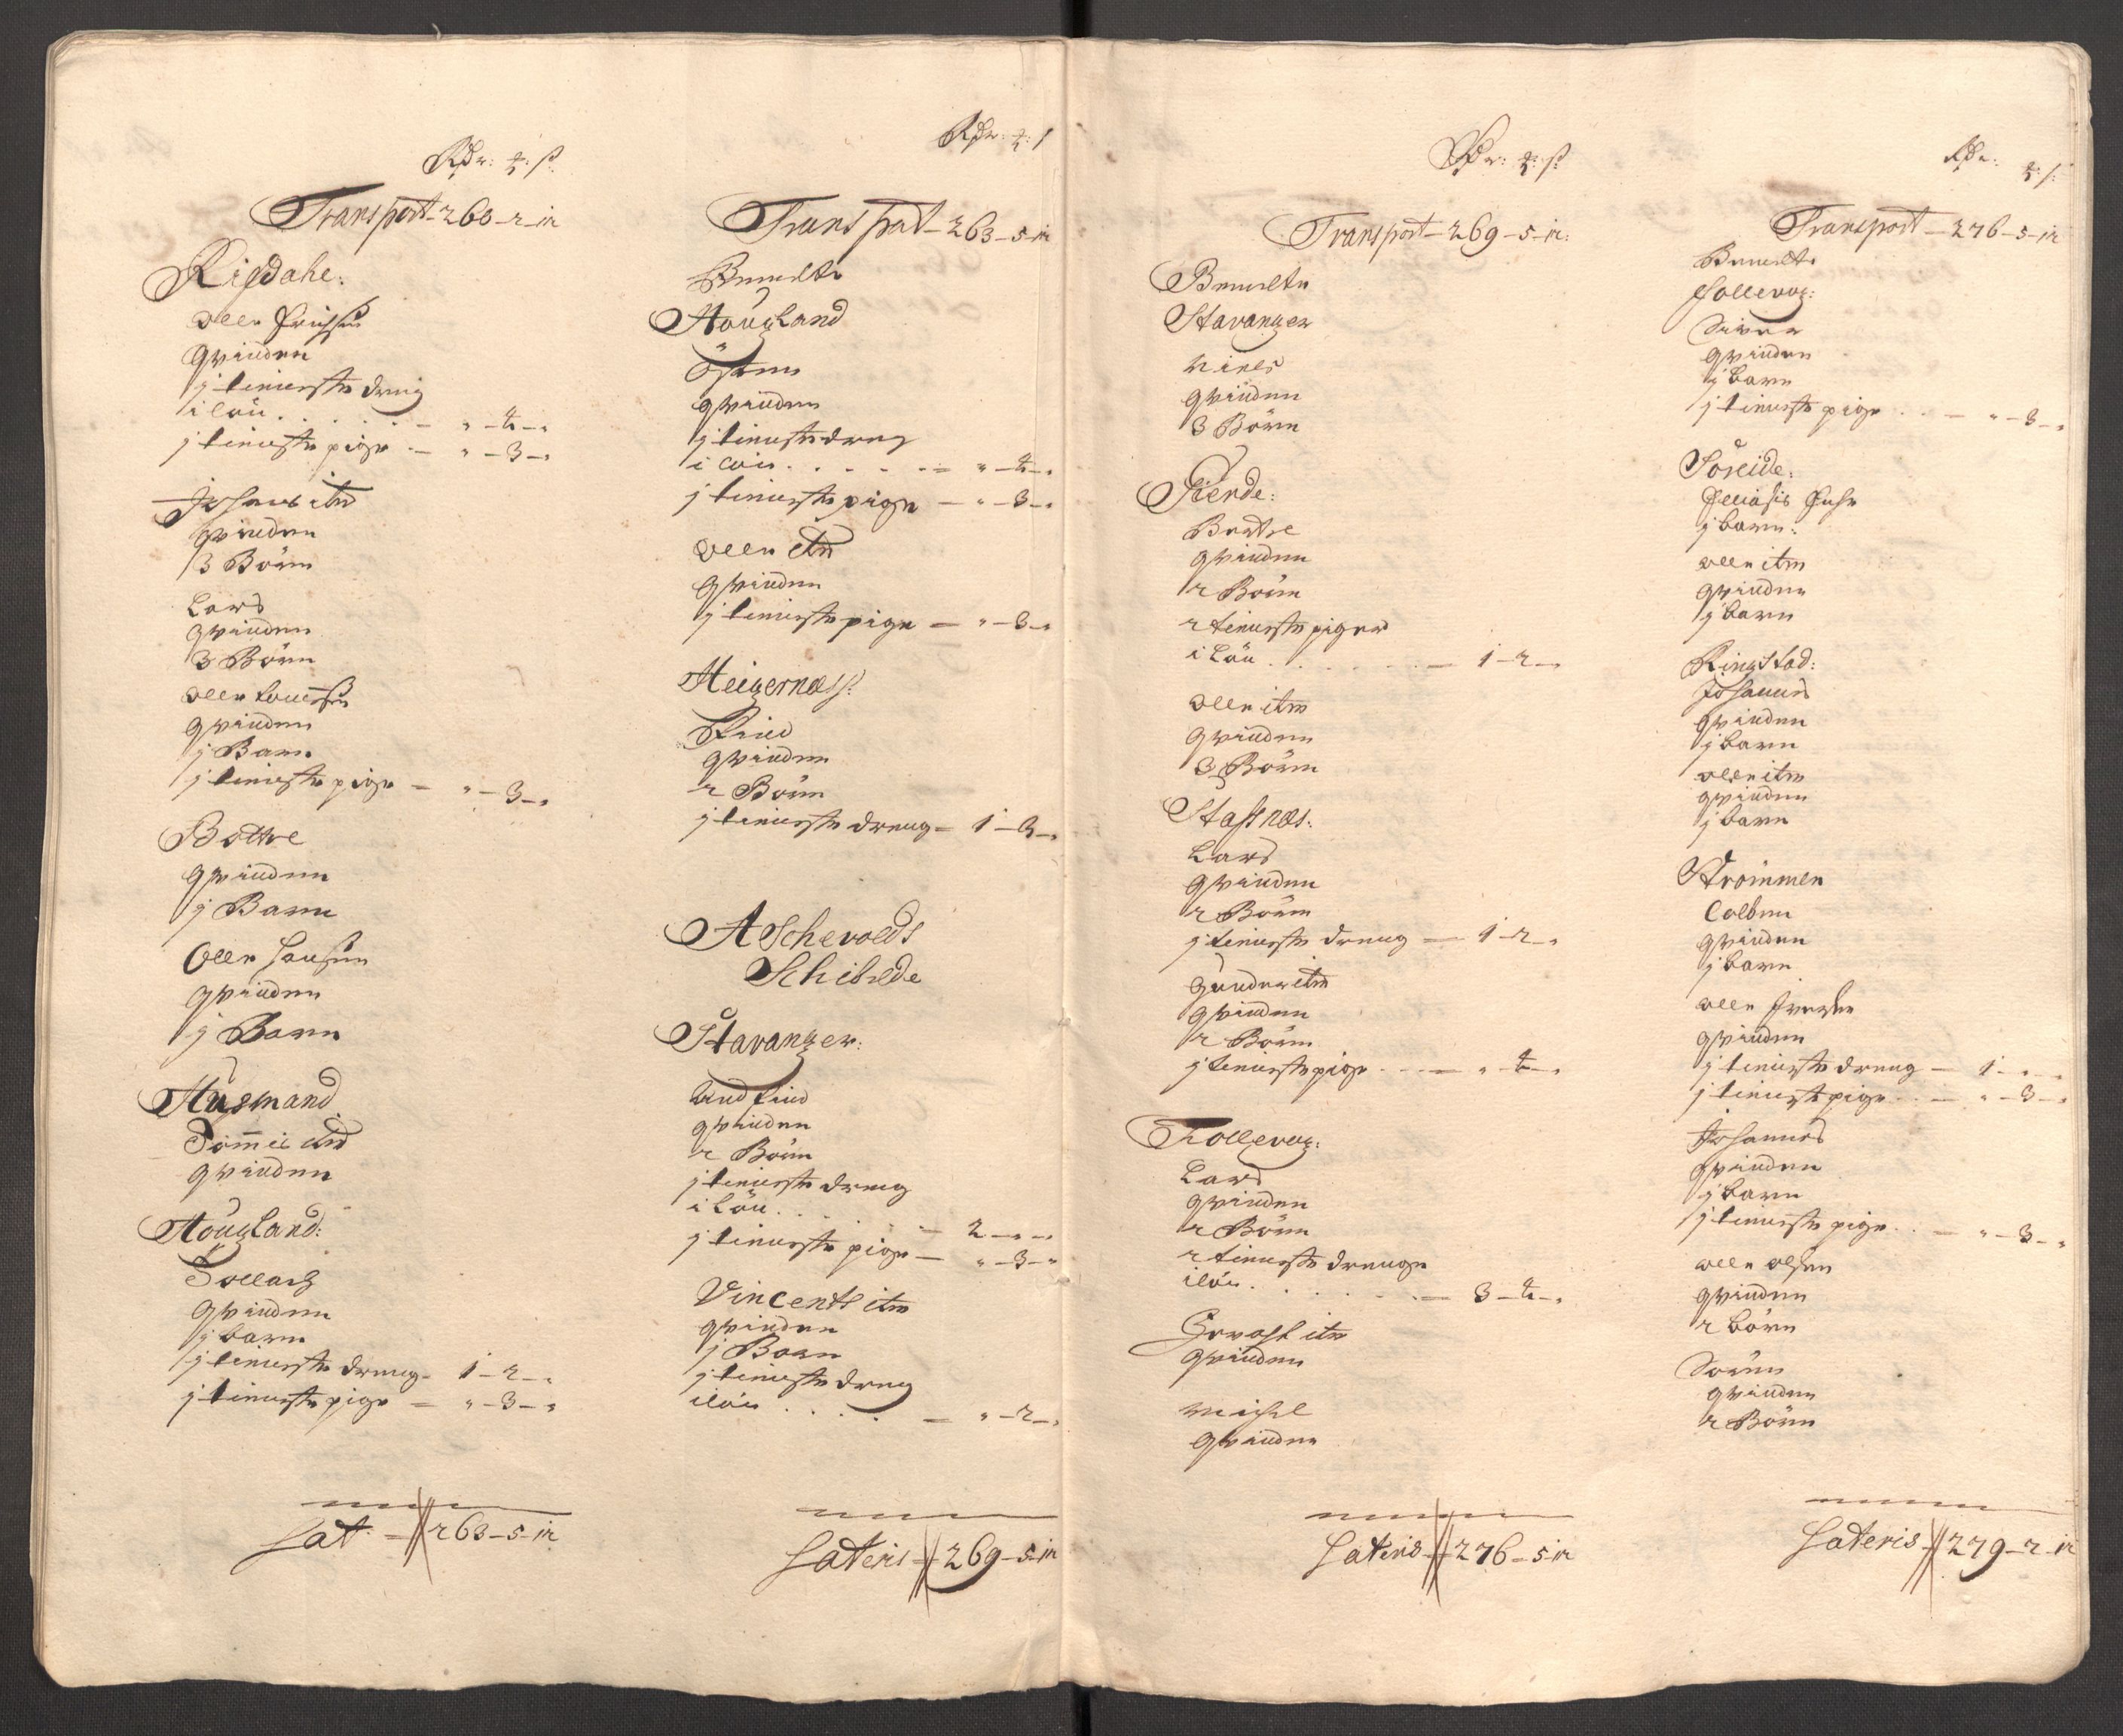 Rdr: ꝶ: ß:
Transport - 260 - 2 - 12
Rigdahe:
Olle
qvinden
j tieneste dreng
i løn . . . . - " - 4 - "
j tieneste pige - " - 3 - "
Johans itm
qvinden
3 Börn
Lars
qvinden
3 Börn
Olle
qvinden
j Barn
j tieneste pige - " - 3 - "
Botle
qvinden
j Barn
Olle Hansen
qvinden
j Barn
Husmand
Tommis itm
qvinden
Hougland:
Tollach
qvinden
j barn
j tieneste dreng - 1 - 2 - "
j tieneste pige - " - 3 - "
Lat: - 263 - 5 - 12
Rdr: ꝶ: ß
Transport - 263 - 5 - 12
Brendte
Hougland
Östen
qvinden
j tieneste dreng
i løn . . . . - " - 4 - "
j tieneste pige - " - 3 - "
Olle itm
qvinden
j tieneste pige - " - 3 - "
Heigernæss:
qvinden
2 Börn
j tieneste dreng - 1 - 3 - "
Aschevolds
Schibrede
Stavanger:
Andfind
qvinden
2 Börn
j tieneste dreng
i Løn . . . - 2 - " - "
j tieneste pige - " - 3 - "
Vincents itm
qvinden
j Barn
j tieneste dreng
i løn . . . . - " - 2 - "
Lateris - 269 - 5 - 12
Rdr: ꝶ: ß:
Transport - 269 - 5 - 12:
Brendte
Stavanger
Niels
qvinden
3 Börn
Stende:
qvinden
2 Börn
2 tieneste piger
i Løn . . . . - 1 - 2 - "
Olle itm
qvinden
3 Börn
Stafnæs:
Lars
qvinden
2 Börn
j tieneste dreng - 1 - 2 - "
Gunder itm
qvinden
2 Börn
j tieneste pige - - - " - 4 - "
Follevog:
Lars
qvinden
2 Börn
2 tieneste drenge
i løn . . . . - 3 - 4 - "
itm
qvinden
Michel
qvinden
Lateris - 276 - 5 - 12
Rdr: ꝶ: ß:
Transport - 276 - 5 - 12
Brendte
Follevog:
Siver
qvinden
j barn
j tieneste pige . . - " - 3 - "
Söreide:
Elliasis Enche
j barn:
Olle itm
qvinden
j barn
Ringstad:
Johannes
qvinden
j barn
Olle itm
qvinden
j barn
Strömmen
Colben
qvinden
j barn
Olle Iversen
qvinden
j tieneste dreng - 1 - " - "
j tieneste pige . . - " - 3 - "
Johannes
qvinden
j barn
j tieneste pige . . - " - 3 - "
Olle Olsen
qvinden
2 börn
Sören
qvinden
2 Börn
Lateris - 279 - 2 - 12